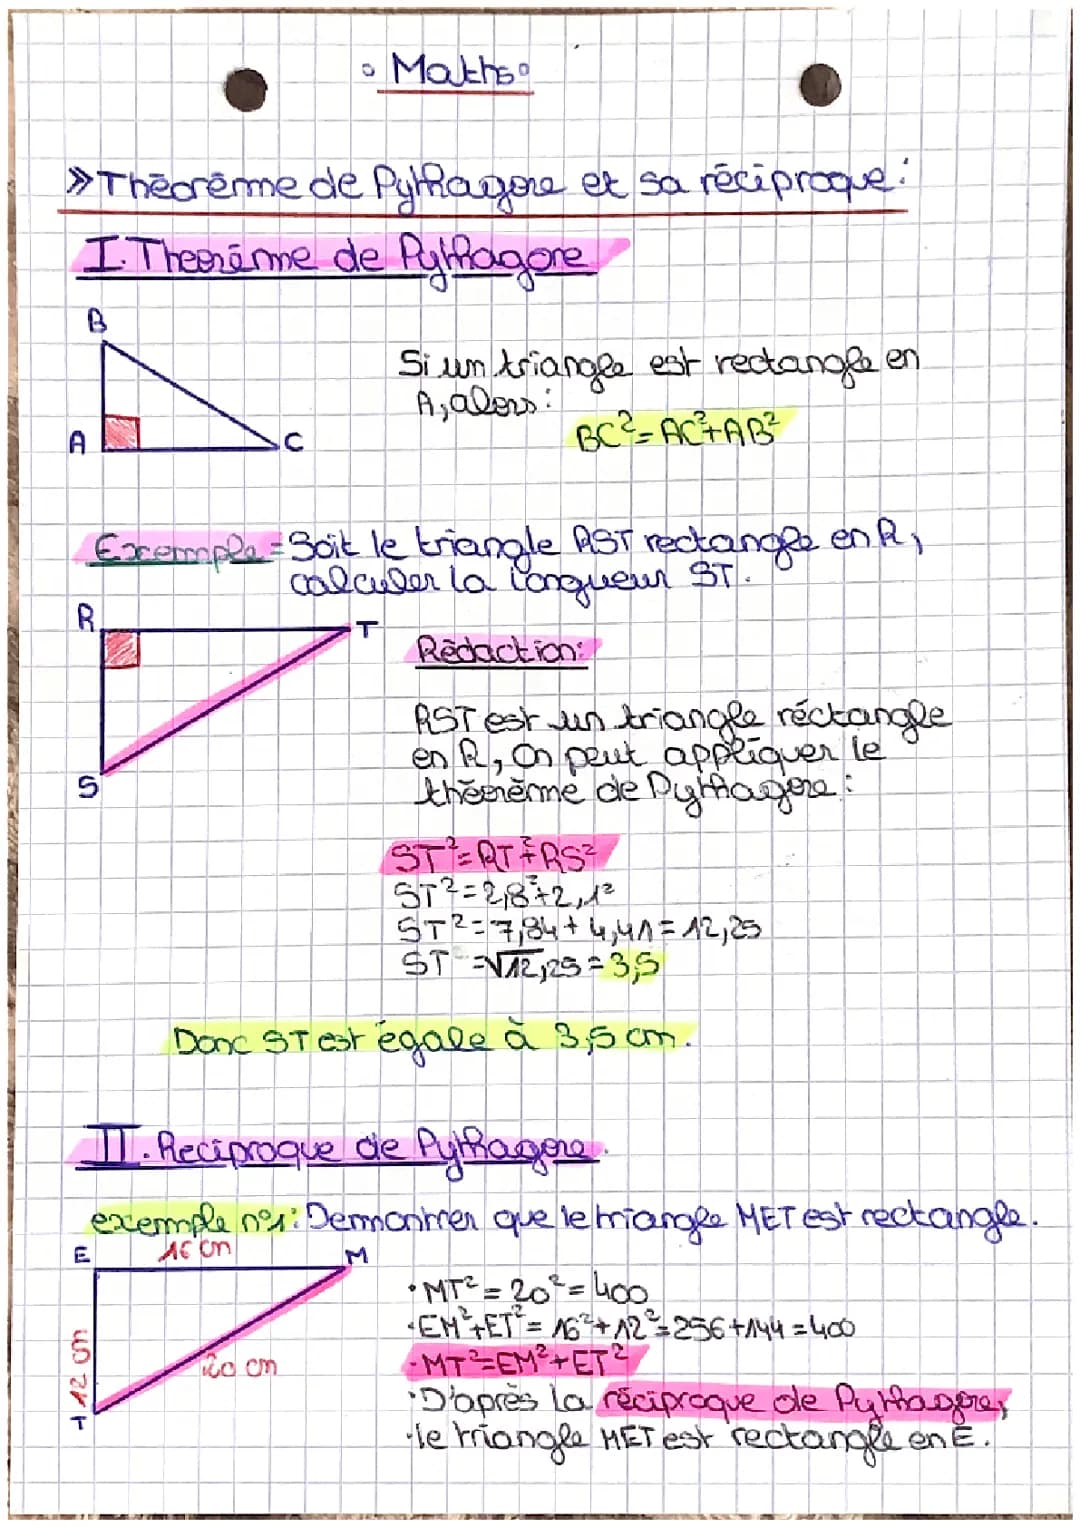 Maths
» Théorème de Pythagore et sa réciproque:
I. Theorème de Pythagore
B
Si un triangle est rectangle en
A, alors:
BC²=AC²+AB²
A
C
Exemple = Soit le triangle RST rectangle en R,
calculer la longueur ST.
R
T
Rédaction:
RST est un triangle réctangle
en R, On peut appliquer le
théorème de Pythagore:
S
ST²=RT²+RS²
ST²=2,8²+2,1²
ST²=7,84+4,41=12,25
ST=√12,25=3,5
Donc ST est égale à 3,5 cm.
II. Reciproque de Pythagore.
exemple n°1: Demontrer que le triangle MET est rectangle.
E
16 cm
M
•MT²=20²=400
•EM²+ET²=16²+12²=256+144=400
12 cm
20 cm
•MT²=EM²+ET²
•D'après la réciproque de Pythagore,
T
•le triangle MET est rectangle en E.